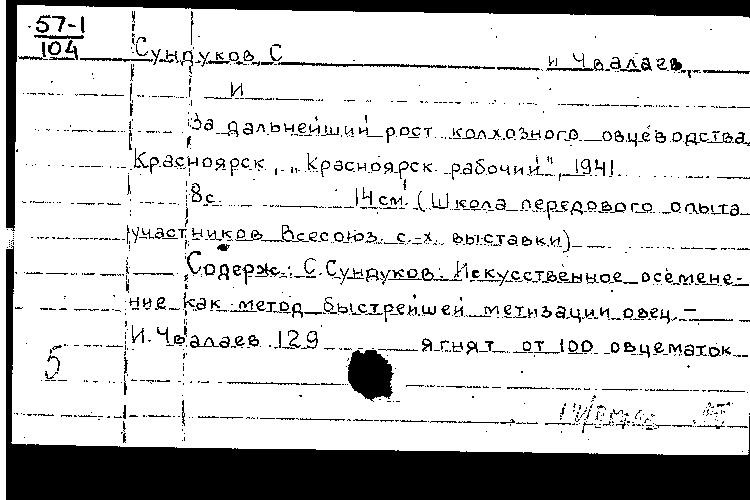 57-1
104
Сундуков, С и Чвалаев,
И
За дальнейший рост колхозного овцеводства
Красноярск, „Красноярск. рабочий", 1941.
8с. 14см (Школа передового опыта
участников Всесоюз. с.-х. выставки)
Содерж.: С. Сундуков: Искусственное осемене-
ние как метод быстрейшей метизации овец. –
И. Чвалаев. 129 ягнят от 100 овцематок
5